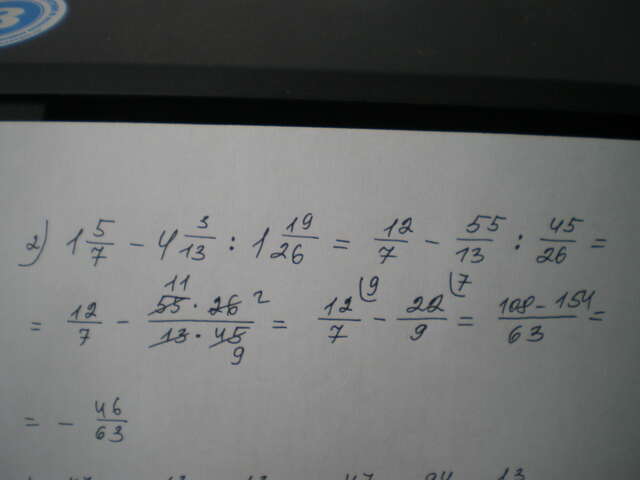 2) 1 5/7 - 4 3/13 : 1 19/26 = 12/7 - 55/13 : 45/26 =
= 12/7 - 55 11 · 26 2 / 13 · 45 9 = 12/7 9 - 22/9 7 = 108 - 154 / 63 =
= - 46/63